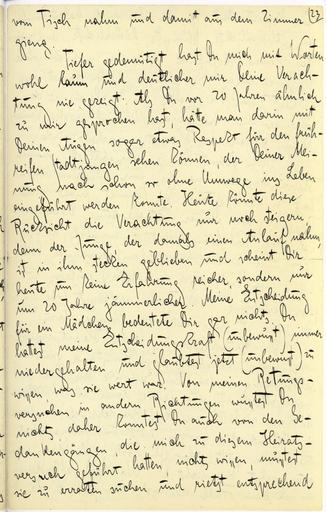 vom Tisch nahm und damit aus dem Zimmer [27
gieng.
Tiefer gedemütigt hast Du mich mit Worten
wohl kaum und deutlicher mir Deine Verach-
tung nie gezeigt. Als Du vor 20 Jahren ähnlich
zu mir gesprochen hast, hätte man darin mit
Deinen Augen sogar etwas Respekt für den früh-
reifen Stadtjungen sehen können, der Deiner Mei-
nung nach schon so ohne Umwege ins Leben
eingeführt werden konnte. Heute könnte diese
Rücksicht die Verachtung nur noch steigern
denn der Junge, der damals einen Anlauf nahm,
ist in ihm stecken geblieben und scheint Dir
heute um keine Erfahrung reicher, sondern nur
um 20 Jahre jämmerlicher. Meine Entscheidung
für ein Mädchen bedeutete Dir gar nichts. Du
hattest meine Entscheidungskraft (unbewusst) immer
niedergehalten und glaubtest jetzt (unbewusst) zu
wissen was sie wert war. Von meinen Rettungs-
versuchen in andern Richtungen wusstest Du
nichts daher konntest Du auch von den Ge-
dankengängen die mich zu diesem Heirats-
versuch geführt hatten, nichts wissen, musstest
sie zu erraten suchen und rietst entsprechend